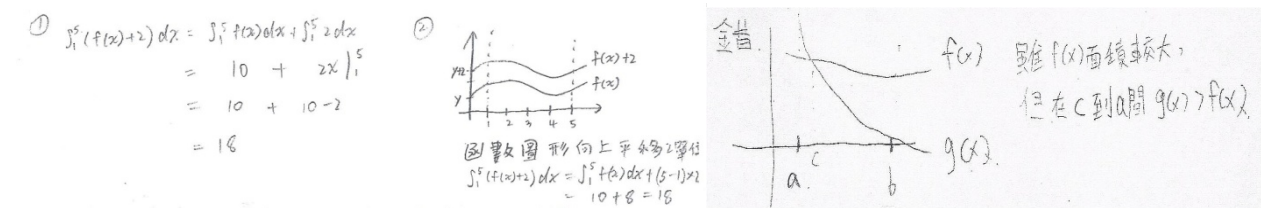 ①
∫₁⁵(f(x)+2)dx = ∫₁⁵f(x)dx+∫₁⁵2dx
= 10 + 2x|₁⁵
= 10 + 10-2
= 18
②
y+2
y
f(x)+2
f(x)
1 2 3 4 5
函數圖形向上平移2單位
∫₁⁵(f(x)+2)dx = ∫₁⁵f(x)dx+(5-1)×2
= 10+8=18
錯.
f(x)
g(x).
a. c b
雖f(x)面積較大,
但在c到a間g(x)>f(x).